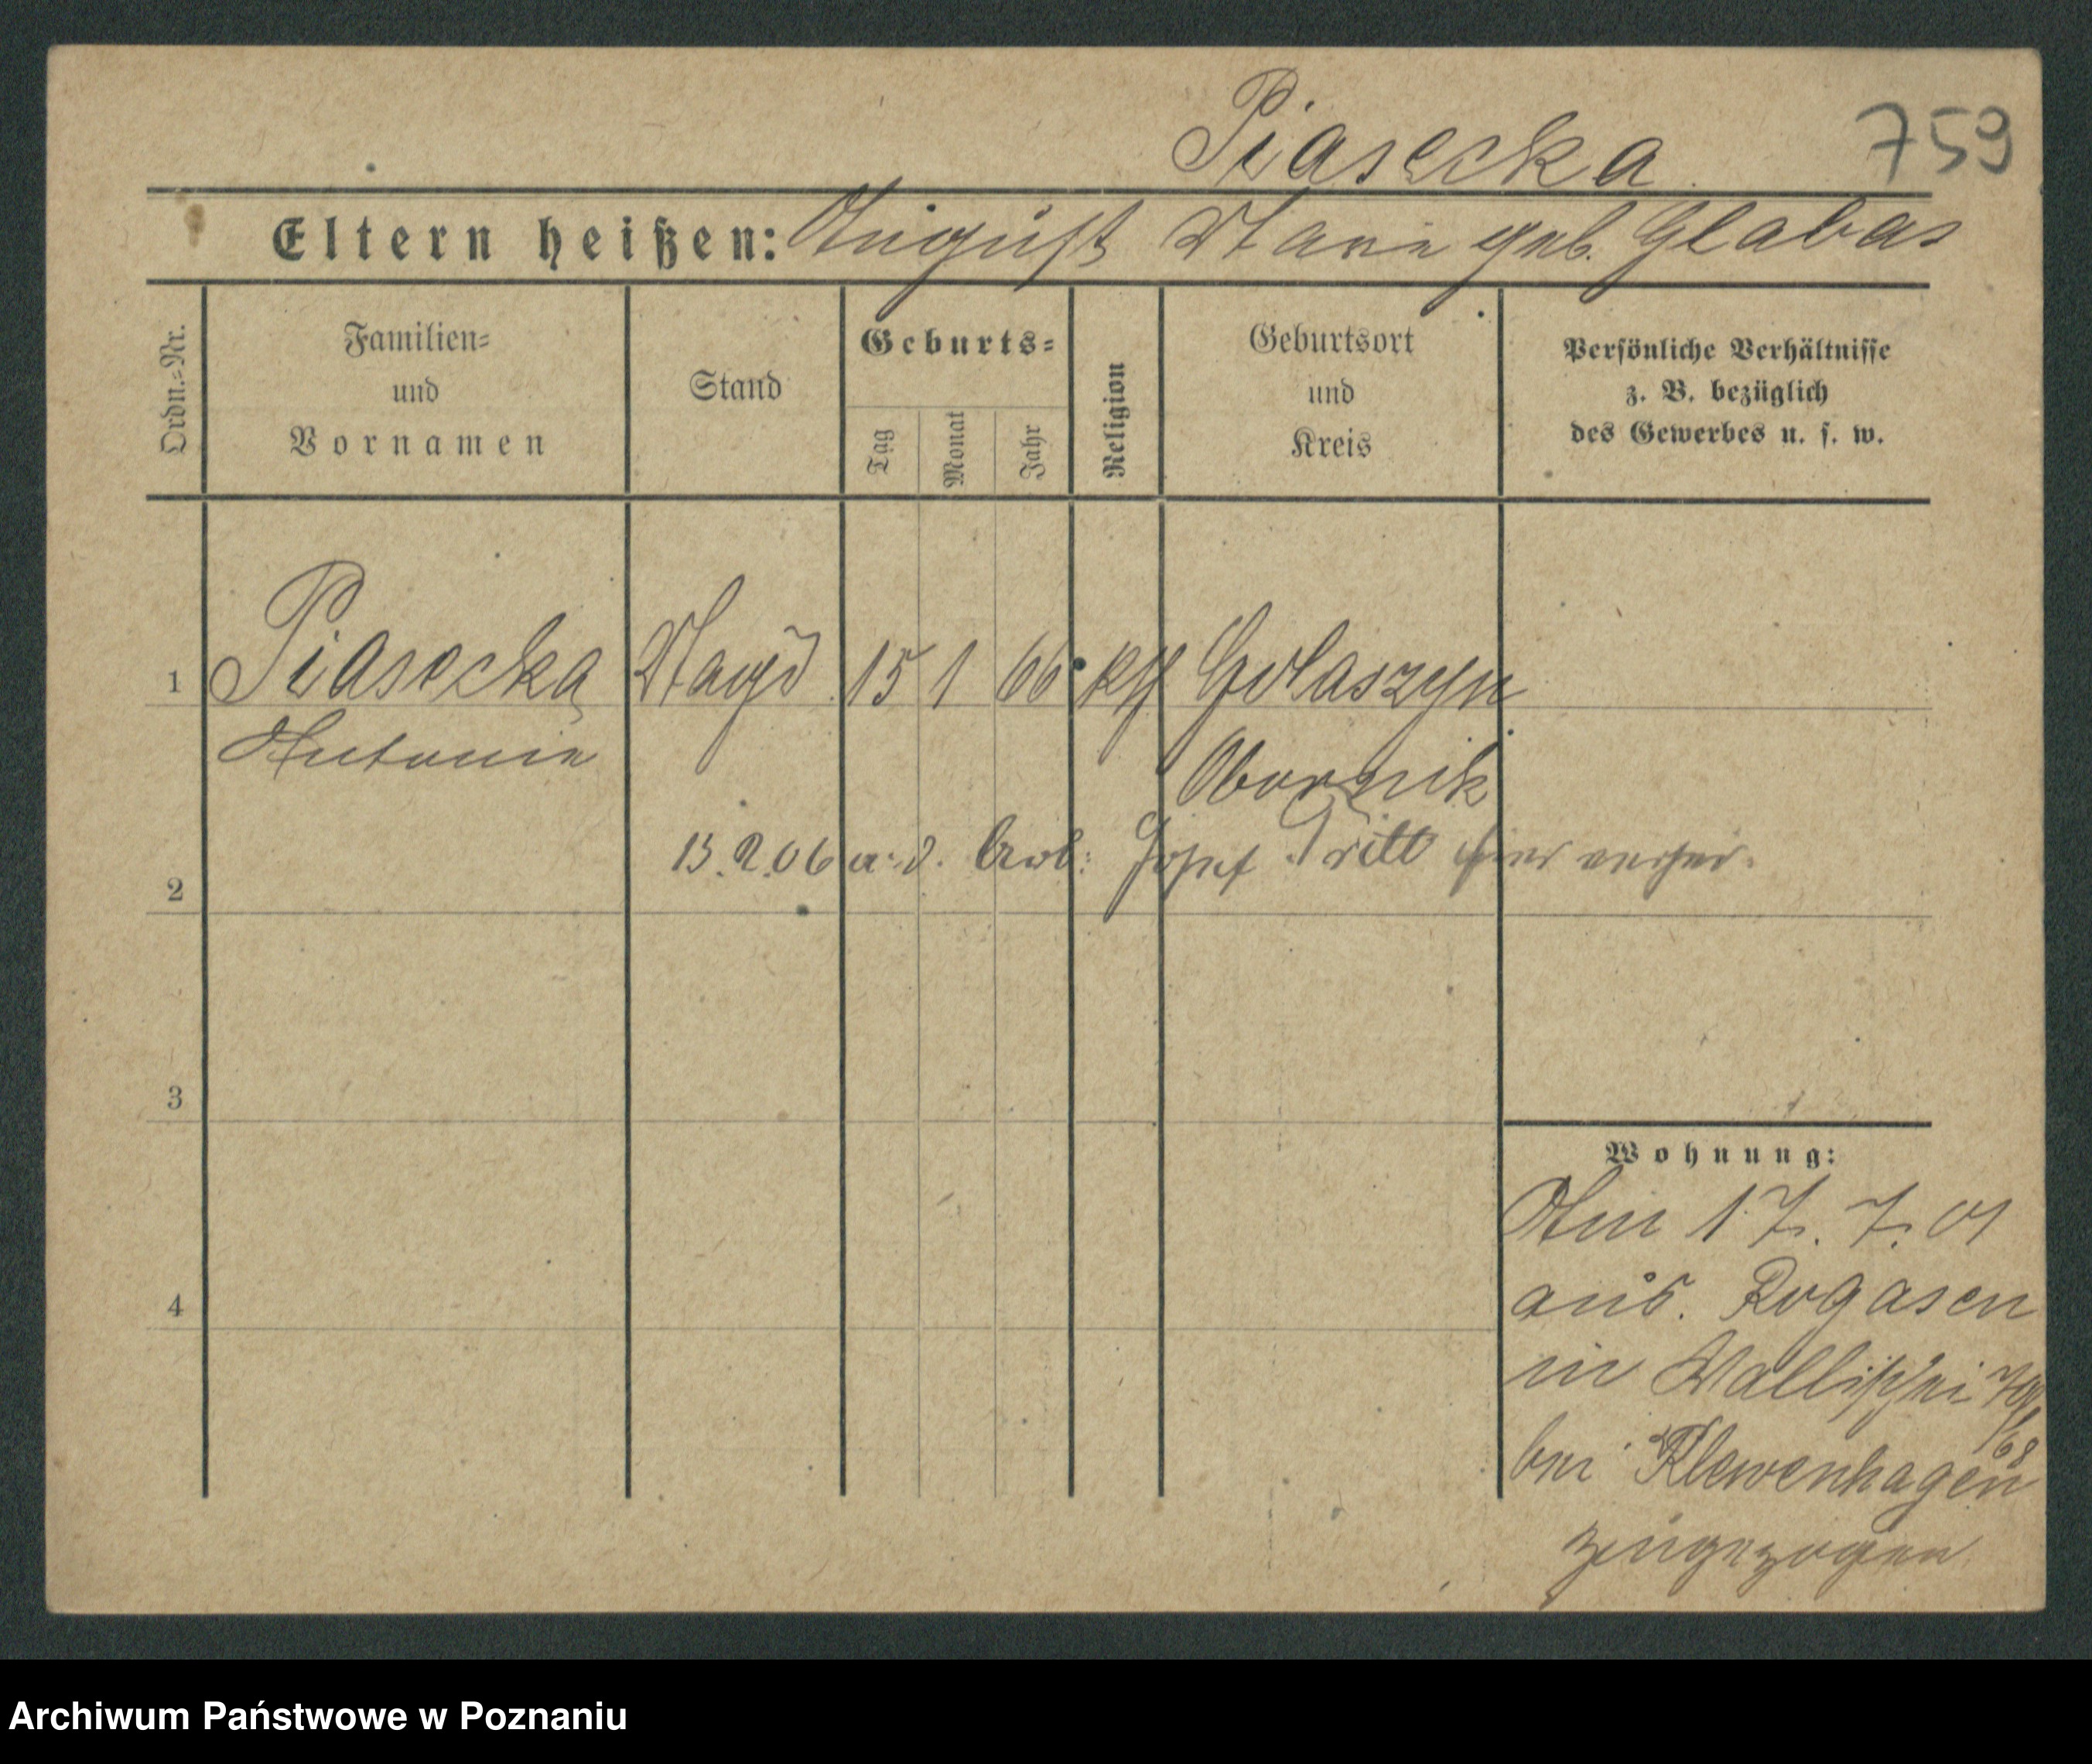 Piasecka
759
Eltern heißen: August Marie geb. Glabas
Ordn.=Nr.
Familien=
und
Vornamen
Stand
Geburts=
Tag
Monat
Jahr
Religion
Geburtsort
und
Kreis
Persönliche Verhältnisse
z. B. bezüglich
des Gewerbes u. s. w.
1 Piasecka Magd 15 1 66 kth Golaszyn
Antonie
Obornik
13.2.06 a. d. Arb: Josef Tritt hier verhei.
2
3
4
Wohnung:
Am 17. 7. 01
aus. Rogasen
in Wallischei
bei Klewenhagen
zugezogen
Archiwum Państwowe w Poznaniu